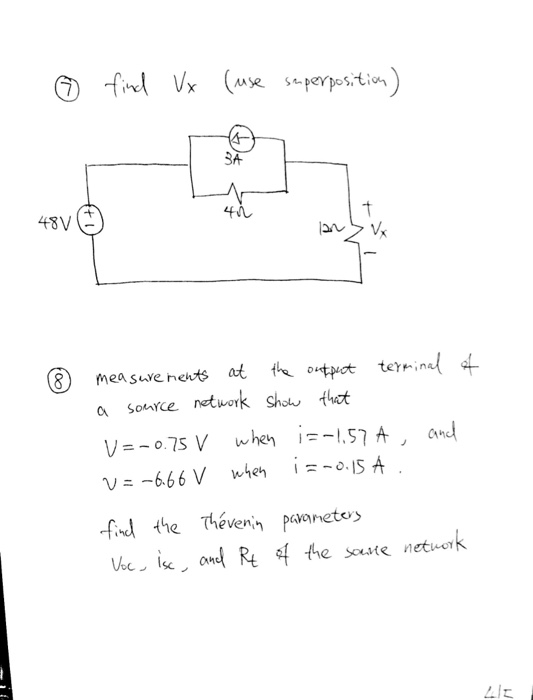 ⑦ find Vx (use superposition)
3A
4Ω
48V
+
−
12Ω
+
Vx
−
⑧ measurements at the output terminal of
a source network show that
V = -0.75 V when i = -1.57 A, and
V = -6.66 V when i = -0.15 A.
find the Thévenin parameters
Voc, isc, and Rt of the source network
4/5